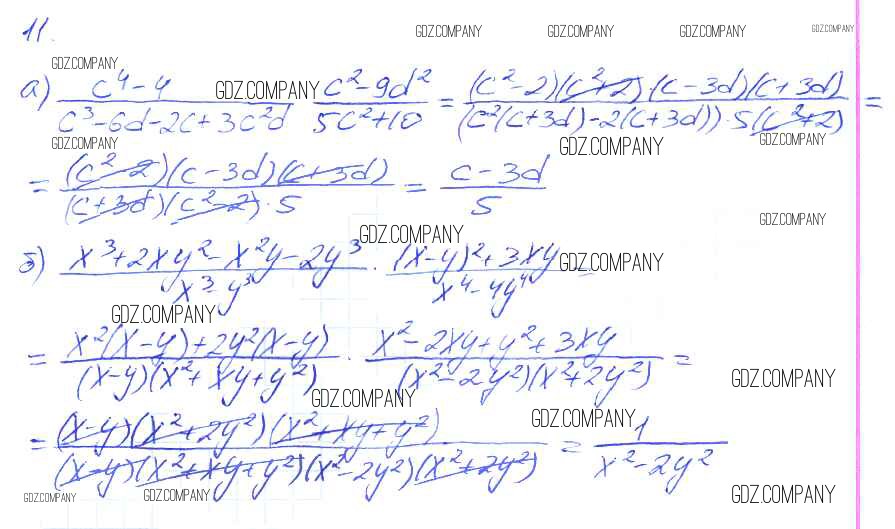 11.
GDZ.COMPANY GDZ.COMPANY GDZ.COMPANY GDZ.COMPANY
GDZ.COMPANY
а) (c⁴-4)/(c³-6d-2c+3c²d) GDZ.COMPANY (c²-9d²)/(5c²+10) = ((c²-2)(c²+2)·(c-3d)(c+3d))/((c²(c+3d)-2(c+3d))·5(c²+2)) =
GDZ.COMPANY GDZ.COMPANY GDZ.COMPANY
= ((c²-2)(c-3d)(c+3d))/((c+3d)(c²-2)·5) = (c-3d)/5
GDZ.COMPANY
GDZ.COMPANY
б) (x³+2xy²-x²y-2y³)/(x³-y³) · ((x-y)²+3xy)/(x⁴-4y⁴) = GDZ.COMPANY
GDZ.COMPANY
= (x²(x-y)+2y²(x-y))/((x-y)(x²+xy+y²)) · (x²-2xy+y²+3xy)/((x²-2y²)(x²+2y²)) =
GDZ.COMPANY
GDZ.COMPANY
GDZ.COMPANY
= ((x-y)(x²+2y²)(x²+xy+y²))/((x-y)(x²+xy+y²)(x²-2y²)(x²+2y²)) = 1/(x²-2y²)
GDZ.COMPANY GDZ.COMPANY GDZ.COMPANY